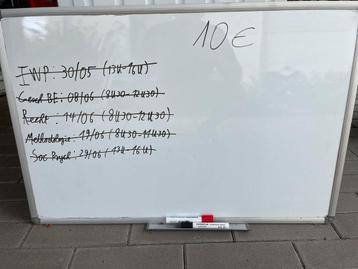 10€
IWP: 30/05 (13u-16u)
Gesch BE: 08/06 (8u30-12u30)
Recht: 14/06 (8u30-12u30)
Methodologie: 19/06 (8u30-11u30)
Soc Psych: 29/06 (13u-16u)